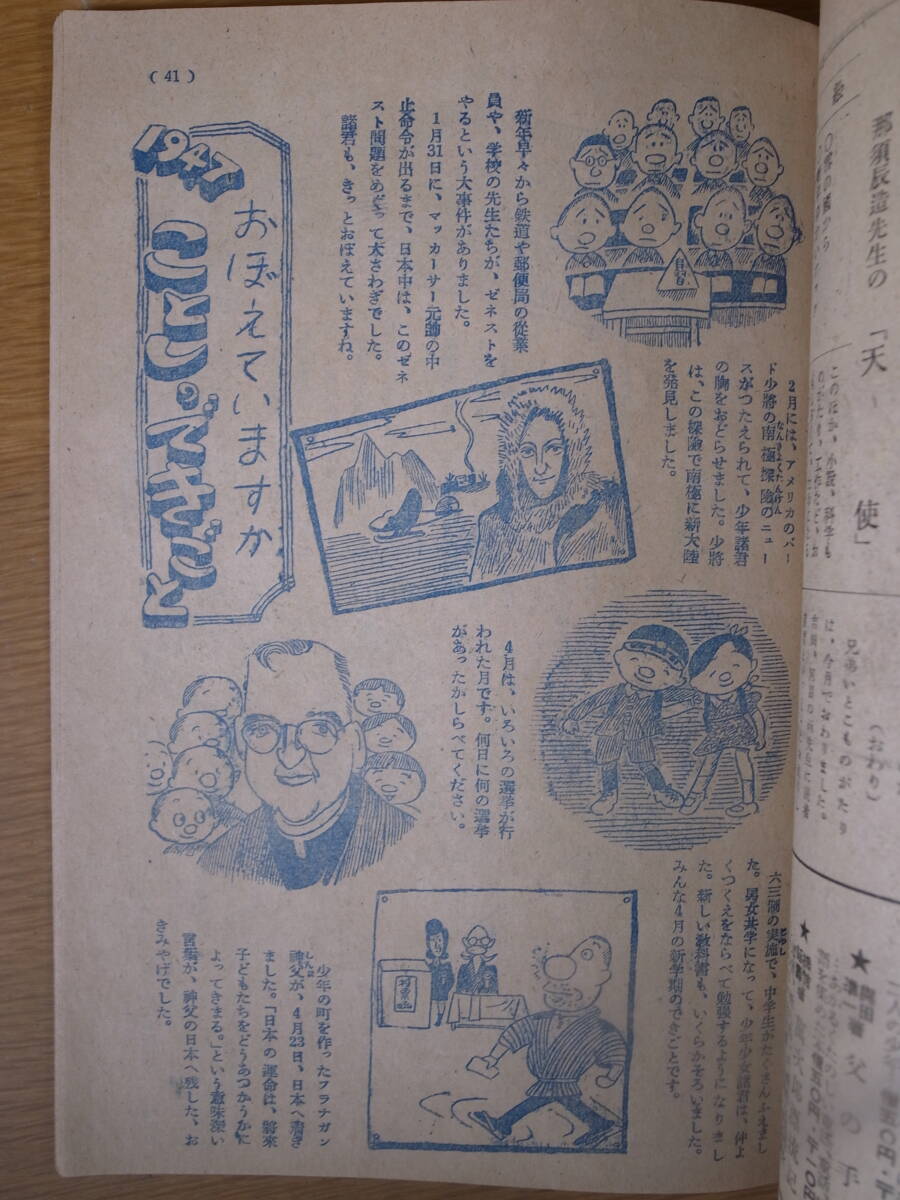 (41)
1947
おぼえていますか
ことしのできごと
新年早々から鉄道や郵便局の従業
員や、学校の先生たちが、ゼネストを
やるという大事件がありました。
1月31日に、マッカーサー元師の中
止命令が出るまで、日本中は、このゼネ
スト問題をめぐって大さわぎでした。
諸君も、きっとおぼえていますね。
自習
2月には、アメリカのバー
ド少將の南極探險のニュー
なんきょくたんけん
スがつたえられて、少年諸君
の胸をおどらせました。少將
は、この探險で南極に新大陸
を発見しました。
4月は、いろいろの選挙が行
われた月です。何日に何の選挙
があったかしらべてください。
六三制の実施で、中学生がたくさんふえまし
じっし
た。男女共学になって、少年少女諸君は、仲よ
くつくえをならべて勉強するようになりまし
た。新しい教科書も、いくらかそろいました。
みんな4月の新学期のできごとです。
投票箱
少年の町を作ったフラナガン
神父が、4月23日、日本へ着き
しんぷ
ました。「日本の運命は、將來
子どもたちをどうあつかうかに
よってきまる。」という意味深い
言葉が、神父の日本へ残した、お
きみやげでした。
那須辰造先生の
「天使」
このほか、小説、科学も
兄あいとこものがたり
は、今月でおわりました。
(おわり)
父の手